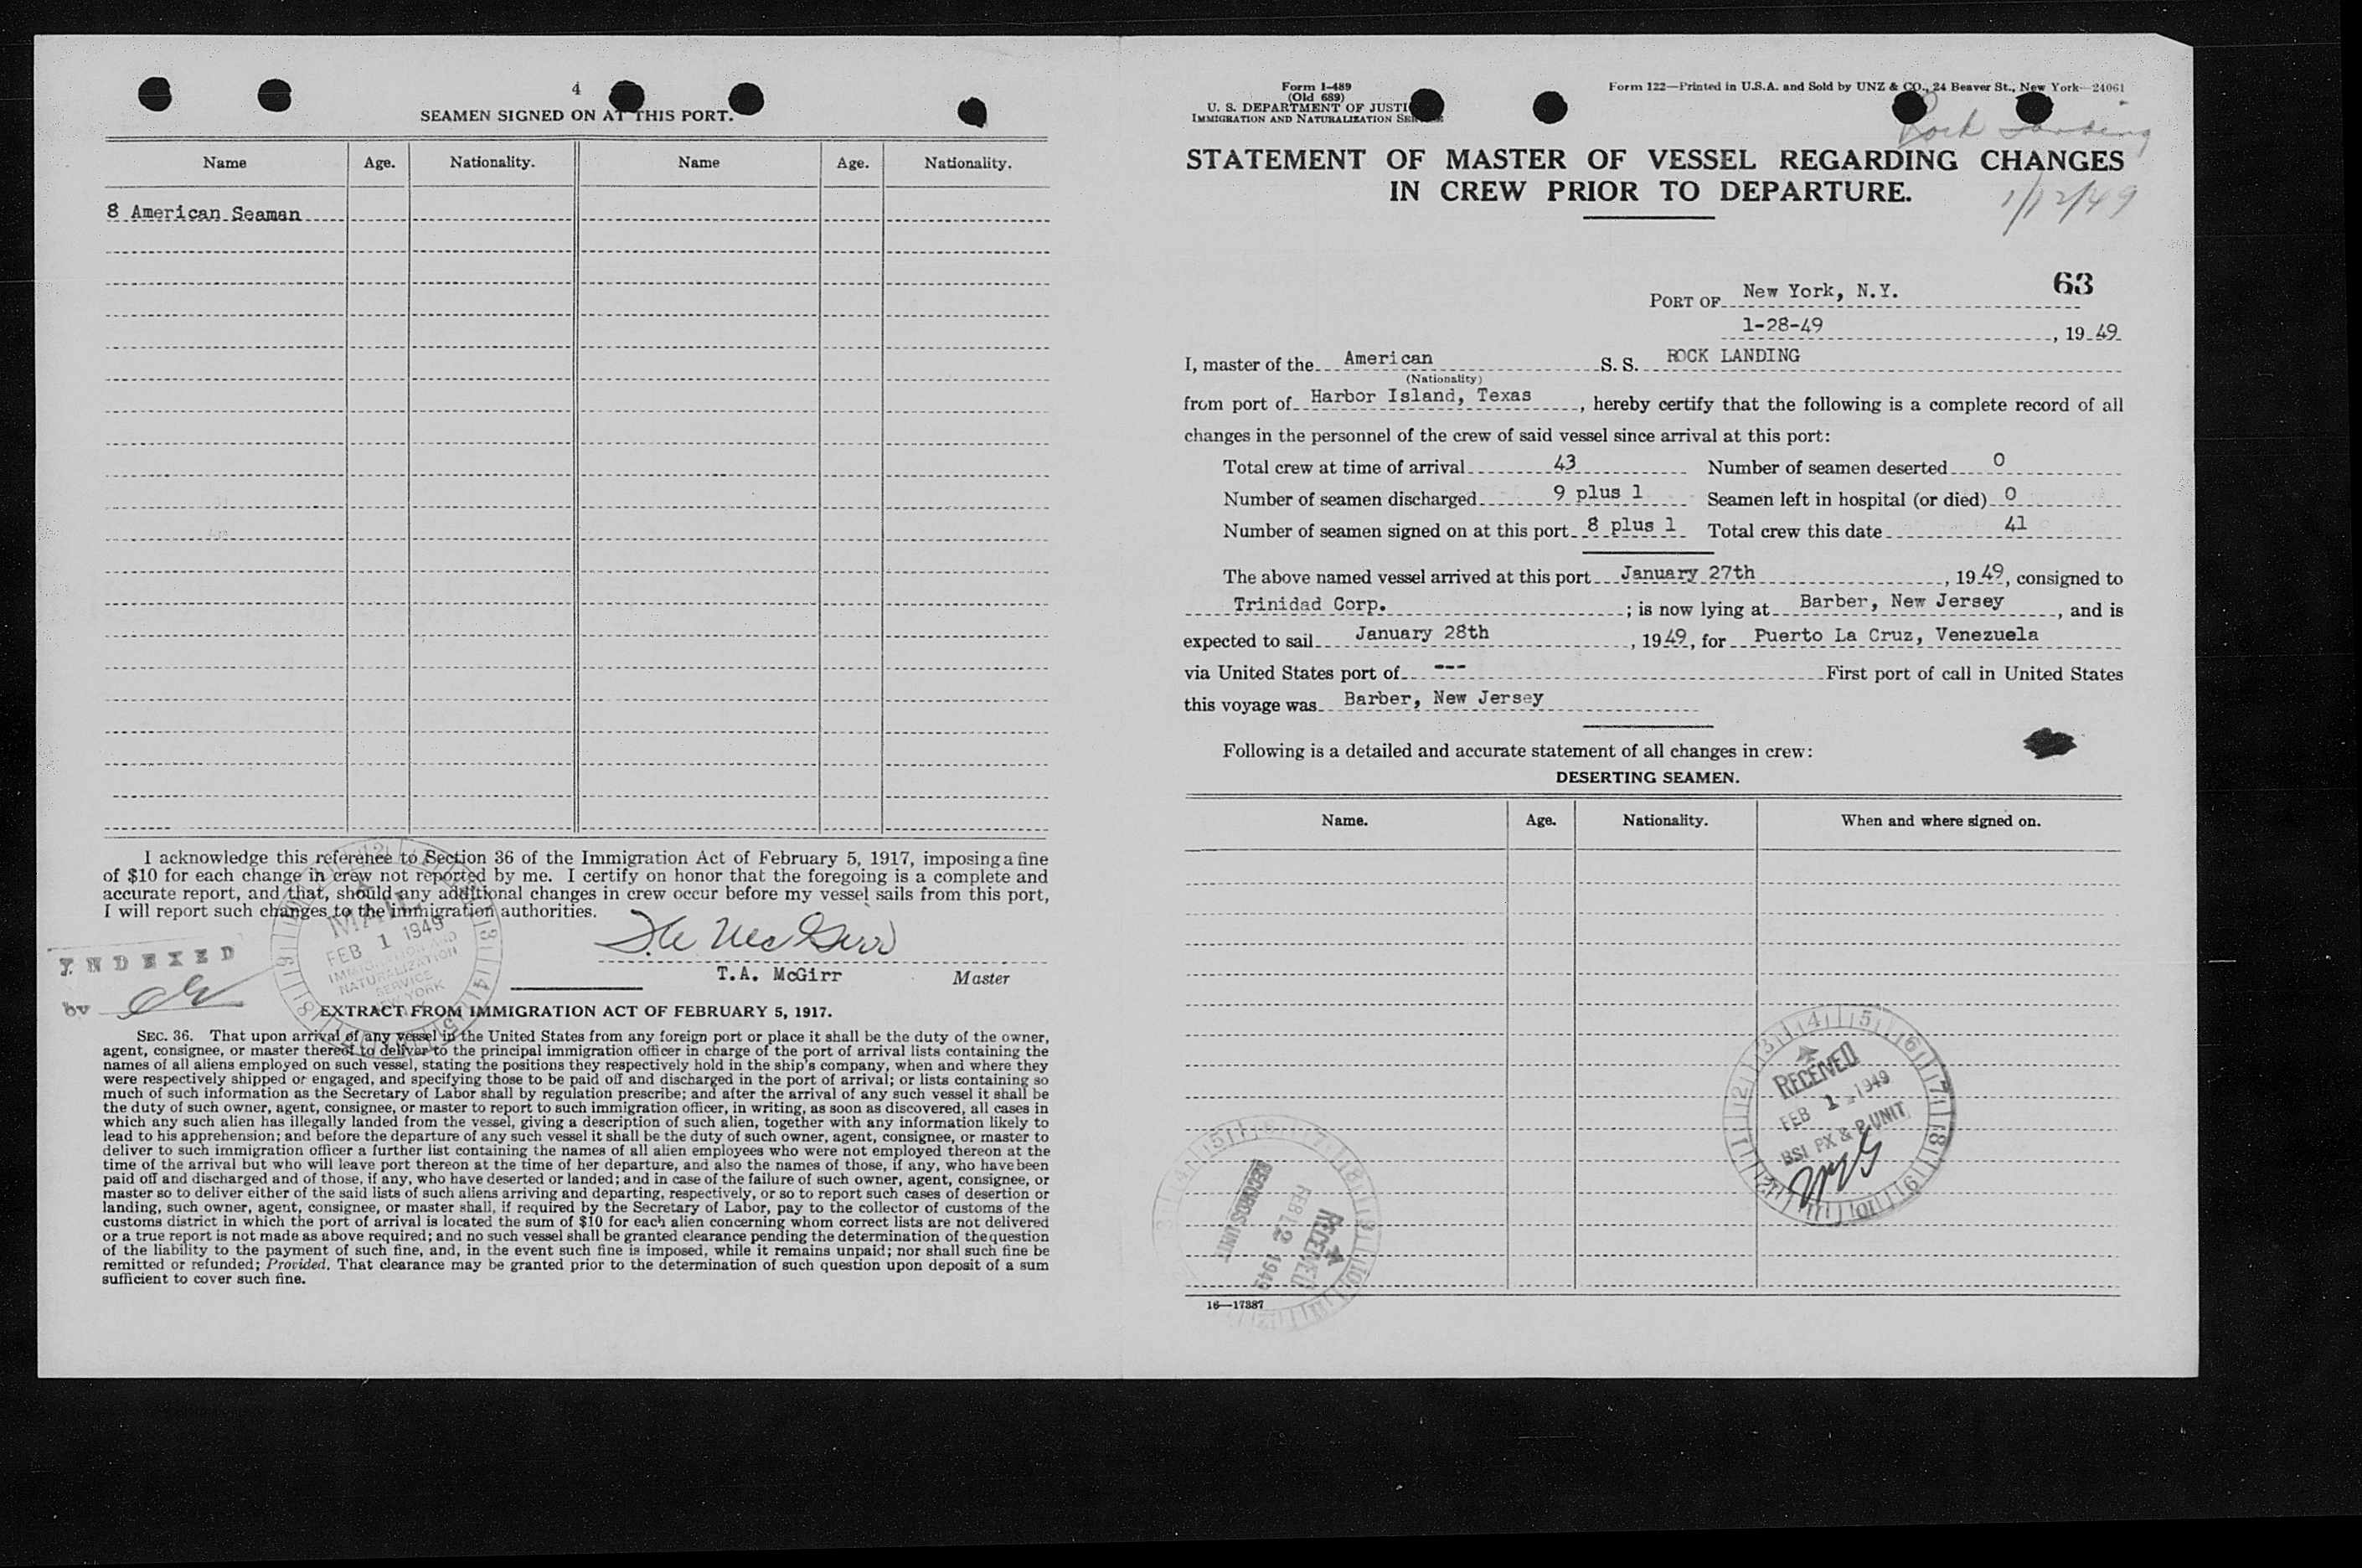 4
SEAMEN SIGNED ON AT THIS PORT.
Name Age. Nationality. Name Age. Nationality.
8 American Seaman
I acknowledge this reference to Section 36 of the Immigration Act of February 5, 1917, imposing a fine
of $10 for each change in crew not reported by me. I certify on honor that the foregoing is a complete and
accurate report, and that, should any additional changes in crew occur before my vessel sails from this port,
I will report such changes to the immigration authorities.
MAIL
FEB 1 1949
IMMIGRATION AND
NATURALIZATION
SERVICE
NEW YORK
INDEXED
by
T.A. McGirr Master
EXTRACT FROM IMMIGRATION ACT OF FEBRUARY 5, 1917.
SEC. 36. That upon arrival of any vessel in the United States from any foreign port or place it shall be the duty of the owner,
agent, consignee, or master thereof to deliver to the principal immigration officer in charge of the port of arrival lists containing the
names of all aliens employed on such vessel, stating the positions they respectively hold in the ship's company, when and where they
were respectively shipped or engaged, and specifying those to be paid off and discharged in the port of arrival; or lists containing so
much of such information as the Secretary of Labor shall by regulation prescribe; and after the arrival of any such vessel it shall be
the duty of such owner, agent, consignee, or master to report to such immigration officer, in writing, as soon as discovered, all cases in
which any such alien has illegally landed from the vessel, giving a description of such alien, together with any information likely to
lead to his apprehension; and before the departure of any such vessel it shall be the duty of such owner, agent, consignee, or master to
deliver to such immigration officer a further list containing the names of all alien employees who were not employed thereon at the
time of the arrival but who will leave port thereon at the time of her departure, and also the names of those, if any, who have been
paid off and discharged and of those, if any, who have deserted or landed; and in case of the failure of such owner, agent, consignee, or
master so to deliver either of the said lists of such aliens arriving and departing, respectively, or so to report such cases of desertion or
landing, such owner, agent, consignee, or master shall, if required by the Secretary of Labor, pay to the collector of customs of the
customs district in which the port of arrival is located the sum of $10 for each alien concerning whom correct lists are not delivered
or a true report is not made as above required; and no such vessel shall be granted clearance pending the determination of the question
of the liability to the payment of such fine, and, in the event such fine is imposed, while it remains unpaid; nor shall such fine be
remitted or refunded; Provided, That clearance may be granted prior to the determination of such question upon deposit of a sum
sufficient to cover such fine.
Form I-489
(Old 689)
U. S. DEPARTMENT OF JUSTI
IMMIGRATION AND NATURALIZATION SER
Form 122—Printed in U.S.A. and Sold by UNZ & CO., 24 Beaver St., New York—24061
Rock Landing
STATEMENT OF MASTER OF VESSEL REGARDING CHANGES
IN CREW PRIOR TO DEPARTURE.
1/12/49
63
PORT OF New York, N.Y.
1-28-49, 19 49
I, master of the American S. S. ROCK LANDING
(Nationality)
from port of Harbor Island, Texas, hereby certify that the following is a complete record of all
changes in the personnel of the crew of said vessel since arrival at this port:
Total crew at time of arrival 43 Number of seamen deserted 0
Number of seamen discharged 9 plus 1 Seamen left in hospital (or died) 0
Number of seamen signed on at this port 8 plus 1 Total crew this date 41
The above named vessel arrived at this port January 27th, 19 49, consigned to
Trinidad Corp.; is now lying at Barber, New Jersey, and is
expected to sail January 28th, 19 49, for Puerto La Cruz, Venezuela
via United States port of --- First port of call in United States
this voyage was Barber, New Jersey
Following is a detailed and accurate statement of all changes in crew:
DESERTING SEAMEN.
Name. Age. Nationality. When and where signed on.
RECEIVED
FEB 1 1949
BSI PX & P UNIT
RECORDS UNIT
FEB 2 1949
RECEIVED
16—17387